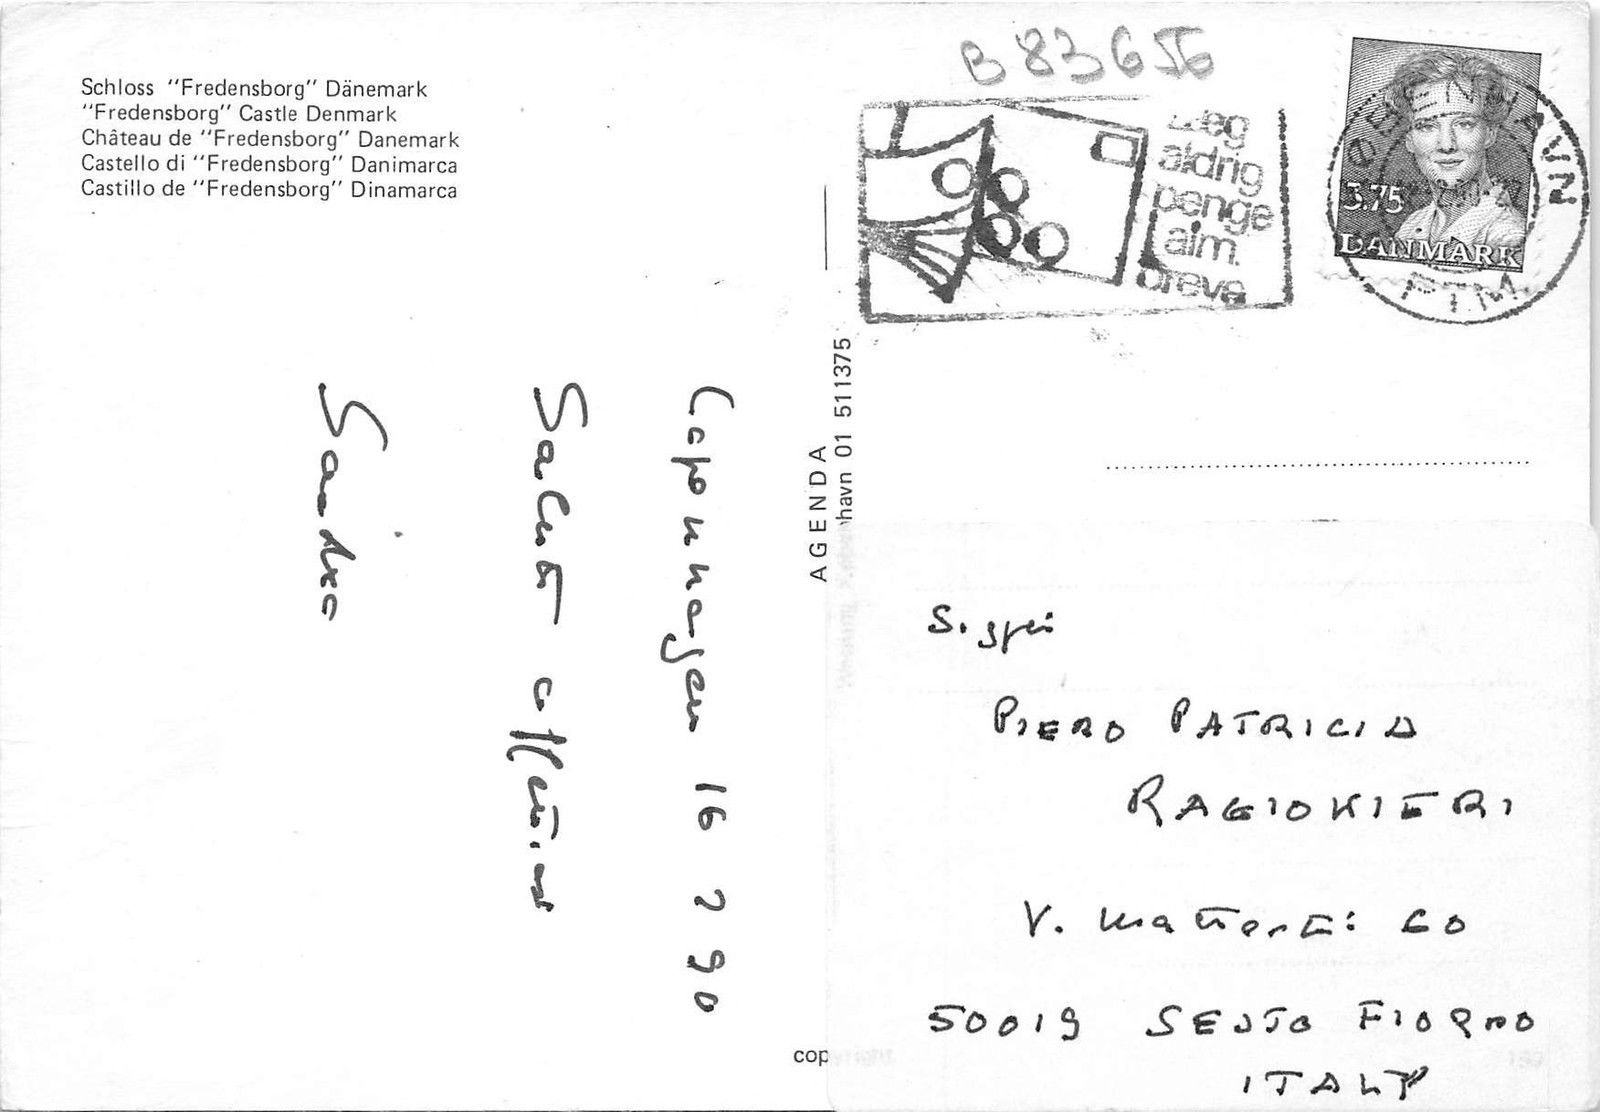 Schloss "Fredensborg" Dänemark
"Fredensborg" Castle Denmark
Château de "Fredensborg" Danemark
Castello di "Fredensborg" Danimarca
Castillo de "Fredensborg" Dinamarca
B 83656
Læg
aldrig
penge
alm.
breve
KØBENHAVN
PTM
3.75
DANMARK
AGENDA
havn 01 511375
Copenhagen 16 2 90
Saluti affettuosi
Sandro
S. gri
PIERO PATRICIA
RAGIONIERI
V. Matteotti 60
50019 SESTO FIORNO
ITALY
cop